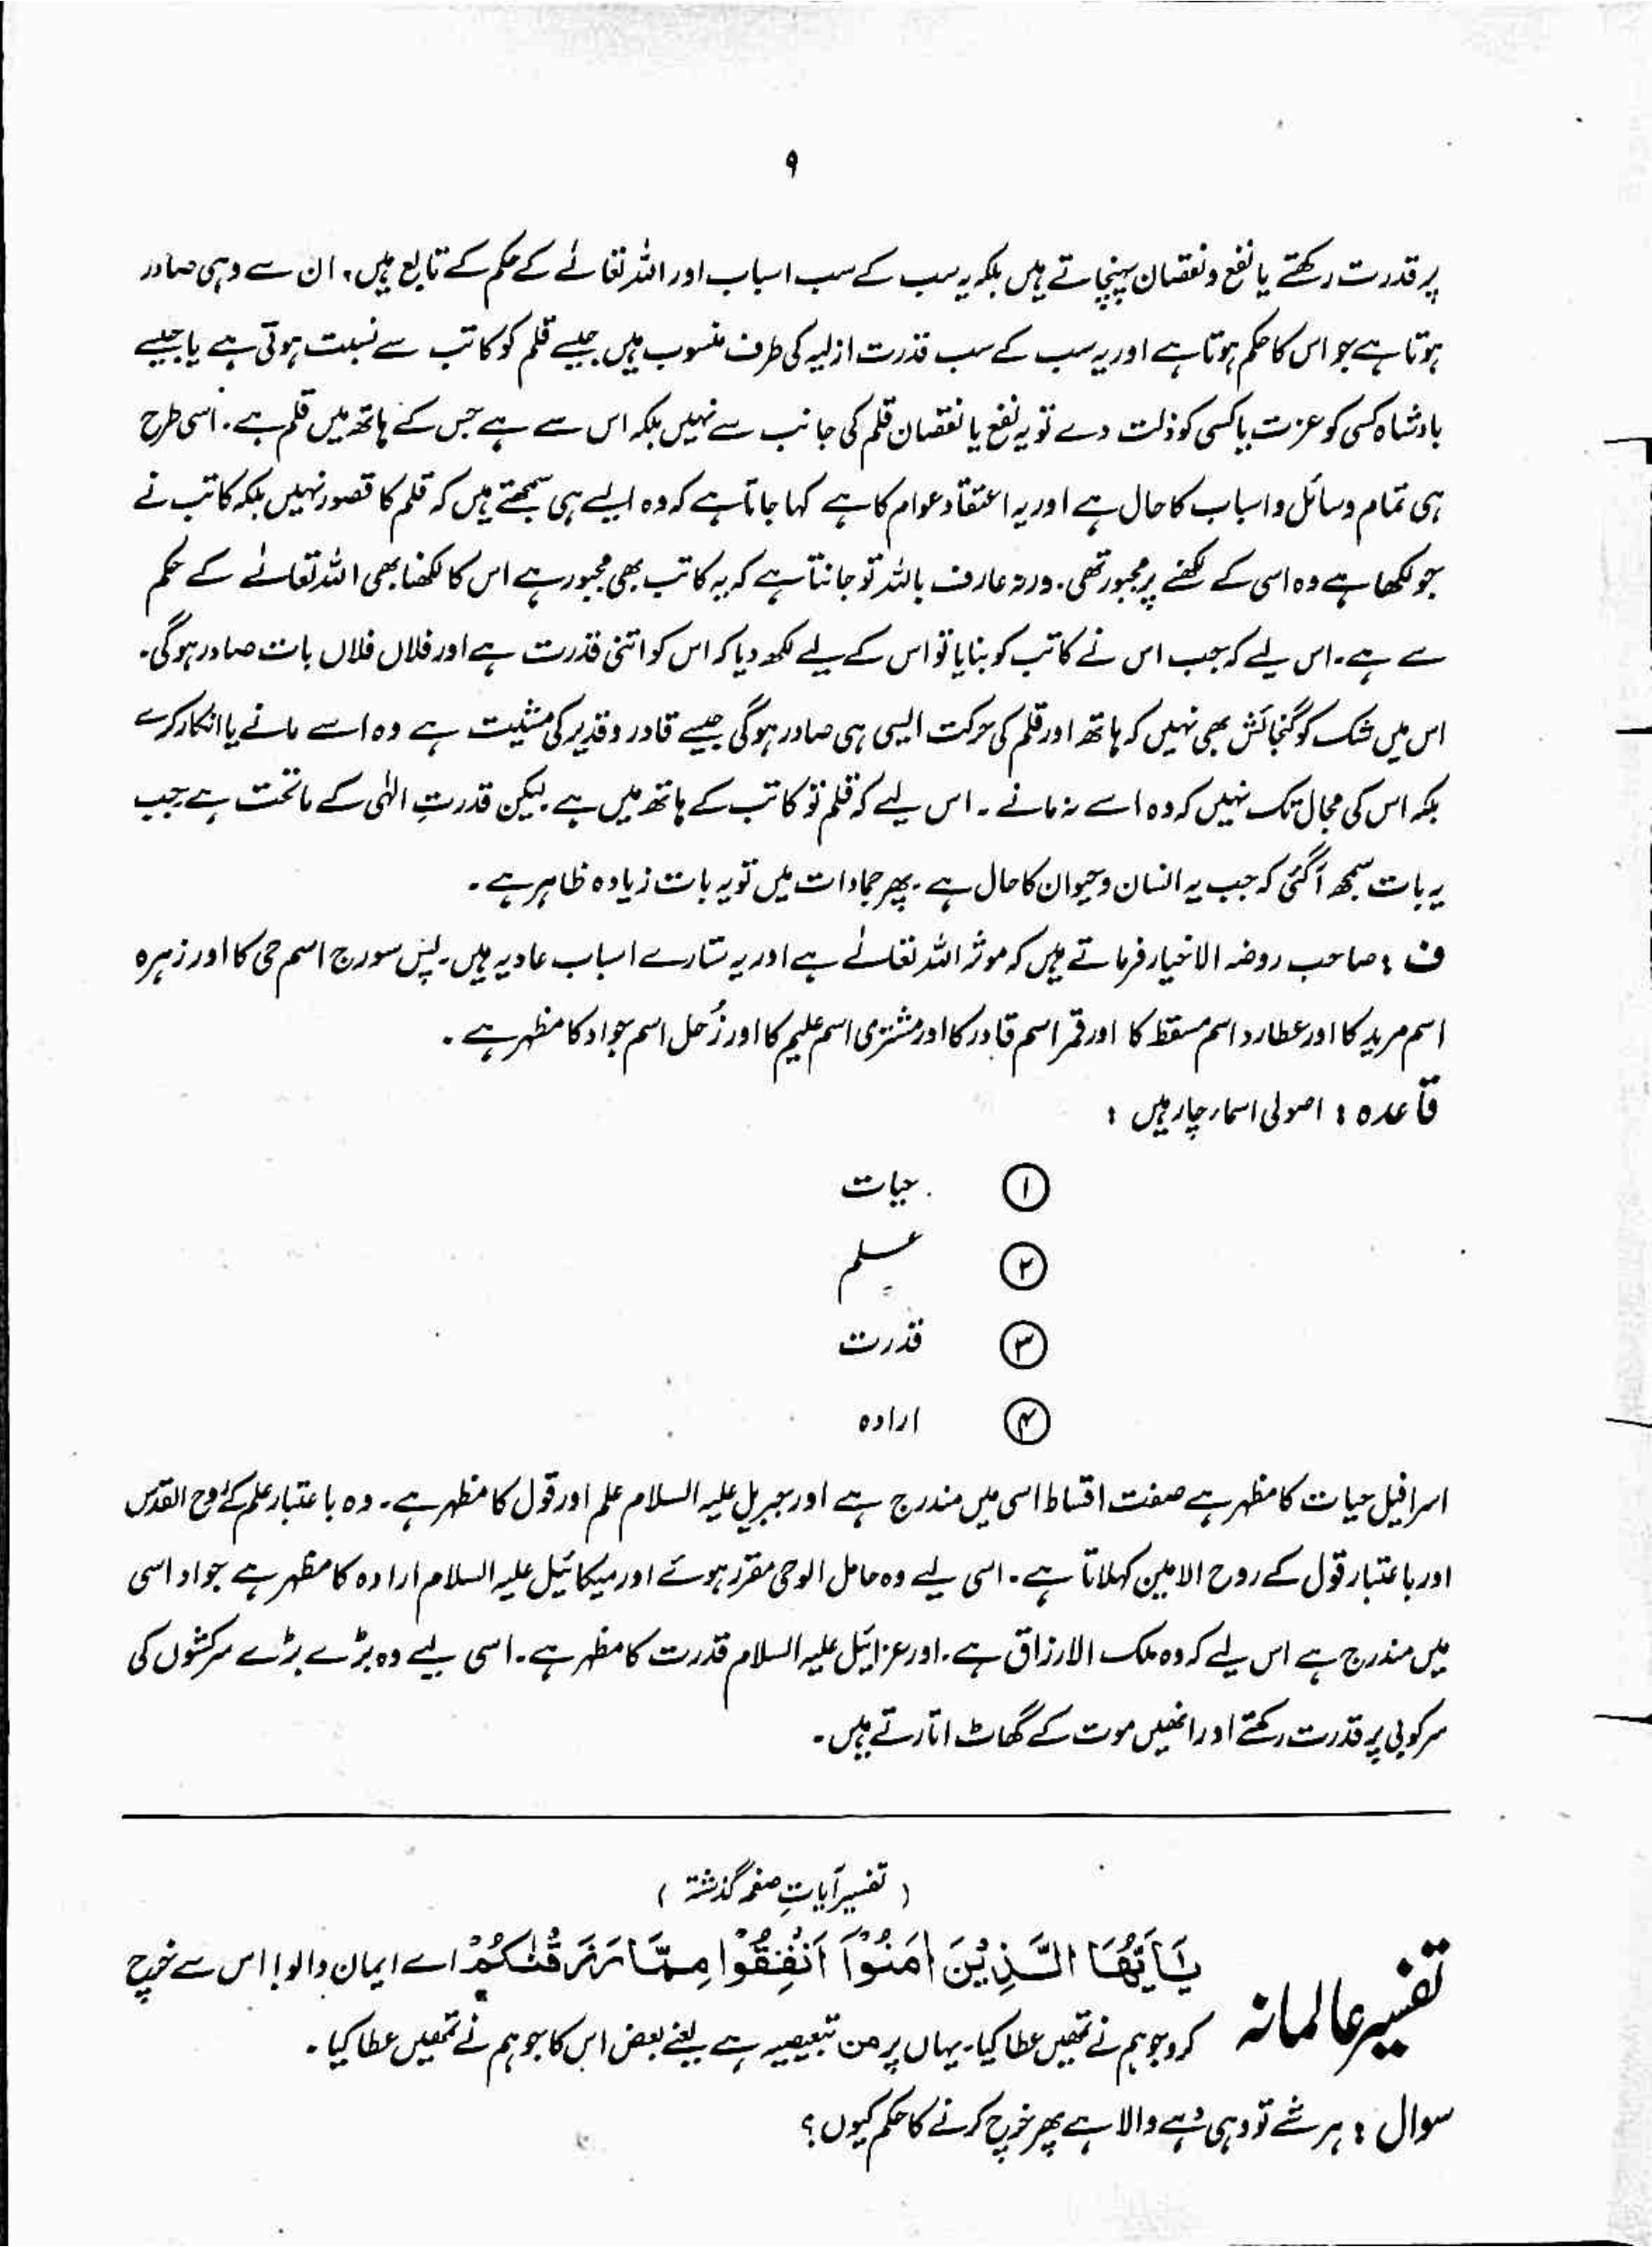 ۹
پر قدرت رکھتے یا نفع و نقصان پہنچاتے ہیں بلکہ یہ سب کے سب اسباب اور اللہ تعالےٰ کے حکم کے تابع ہیں، ان سے وہی صادر
ہوتا ہے جو اس کا حکم ہوتا ہے اور یہ سب کے سب قدرت ازلیہ کی طرف منسوب ہیں جیسے قلم کو کاتب سے نسبت ہوتی ہے یا جیسے
بادشاہ کسی کو عزت یا کسی کو ذلت دے تو یہ نفع یا نقصان قلم کی جانب سے نہیں بلکہ اس سے ہے جس کے ہاتھ میں قلم ہے۔ اسی طرح
ہی تمام وسائل و اسباب کا حال ہے اور یہ اعتقاد عوام کا ہے کہا جاتا ہے کہ وہ ایسے ہی سمجھتے ہیں کہ قلم کا قصور نہیں بلکہ کاتب نے
جو لکھا ہے وہ اسی کے لکھنے پر مجبور تھی۔ ورنہ عارف باللہ تو جانتا ہے کہ یہ کاتب بھی مجبور ہے اس کا لکھنا بھی اللہ تعالےٰ کے حکم
سے ہے۔ اس لیے کہ جب اس نے کاتب کو بنایا تو اس کے لیے لکھ دیا کہ اس کو اتنی قدرت ہے اور فلاں فلاں بات صادر ہوگی۔
اس میں شک کو گنجائش بھی نہیں کہ ہاتھ اور قلم کی حرکت ایسی ہی صادر ہوگی جیسے قادر و قدیر کی مشیت ہے وہ اسے مانے یا انکار کرے
بلکہ اس کی مجال تک نہیں کہ وہ اسے نہ مانے۔ اس لیے کہ قلم تو کاتب کے ہاتھ میں ہے لیکن قدرتِ الٰہی کے ماتحت ہے جب
یہ بات سمجھ آ گئی کہ جب یہ انسان و حیوان کا حال ہے۔ پھر جمادات میں تو یہ بات زیادہ ظاہر ہے۔
ف : صاحب روضہ الاخیار فرماتے ہیں کہ موثر اللہ تعالےٰ ہے اور یہ ستارے اسباب عادیہ ہیں۔ پس سورج اسم حی کا اور زہرہ
اسم مرید کا اور عطارد اسم مسقط کا اور قمر اسم قادر کا اور مشتری اسم علیم کا اور زُحل اسم جواد کا مظہر ہے۔
قاعدہ : اصولی اسماء چار ہیں :
۱ حیات
۲ علم
۳ قدرت
۴ ارادہ
اسرافیل حیات کا مظہر ہے صفت اقساط اسی میں مندرج ہے اور جبریل علیہ السلام علم اور قول کا مظہر ہے۔ وہ باعتبار علم کے روح القدس
اور باعتبار قول کے روح الامین کہلاتا ہے۔ اسی لیے وہ حامل الوحی مقرر ہوئے اور میکائیل علیہ السلام ارادہ کا مظہر ہے جواد اسی
میں مندرج ہے اس لیے کہ وہ ملک الارزاق ہے۔ اور عزائیل علیہ السلام قدرت کا مظہر ہے۔ اسی لیے وہ بڑے بڑے سرکشوں کی
سرکوبی پر قدرت رکھتے اور انھیں موت کے گھاٹ اتارتے ہیں۔
(تفسیر آیاتِ صفحہ گذشتہ)
تفسیر عالمانہ يٰٓاَيُّهَا الَّذِيْنَ اٰمَنُوْٓا اَنْفِقُوْا مِمَّا رَزَقْنٰكُمْ اے ایمان والو! اس سے خرچ
کرو جو ہم نے تمھیں عطا کیا۔ یہاں پر من تبعیضیہ ہے یعنے بعض اس کا جو ہم نے تمھیں عطا کیا۔
سوال : ہر شے تو وہی دینے والا ہے پھر خرچ کرنے کا حکم کیوں؟